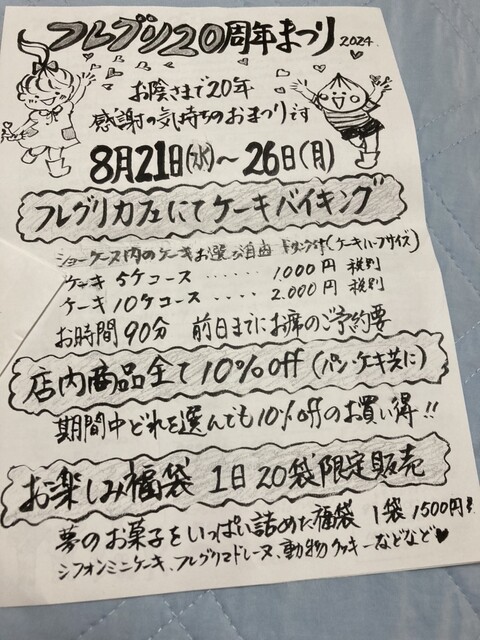 フレグリ20周年まつり 2024.
お陰さまで20年
感謝の気持ちのおまつりです
8月21日(水)～26日(月)
フレグリカフェにてケーキバイキング
ショーケース内のケーキお選び自由 ドリンク付(ケーキハーフサイズ)
ケーキ5ケコース ...... 1,000円 税別
ケーキ10ケコース ..... 2,000円 税別
お時間90分 前日までにお席のご予約要
店内商品全て10%off(パン・ケーキ共に)
期間中どれを選んでも10%offのお買い得!!
お楽しみ福袋 1日20袋限定販売
夢のお菓子をいっぱい詰めた福袋 1袋 1500円
シフォンミニケーキ、フレグリマドレーヌ、動物クッキーなどなど♥